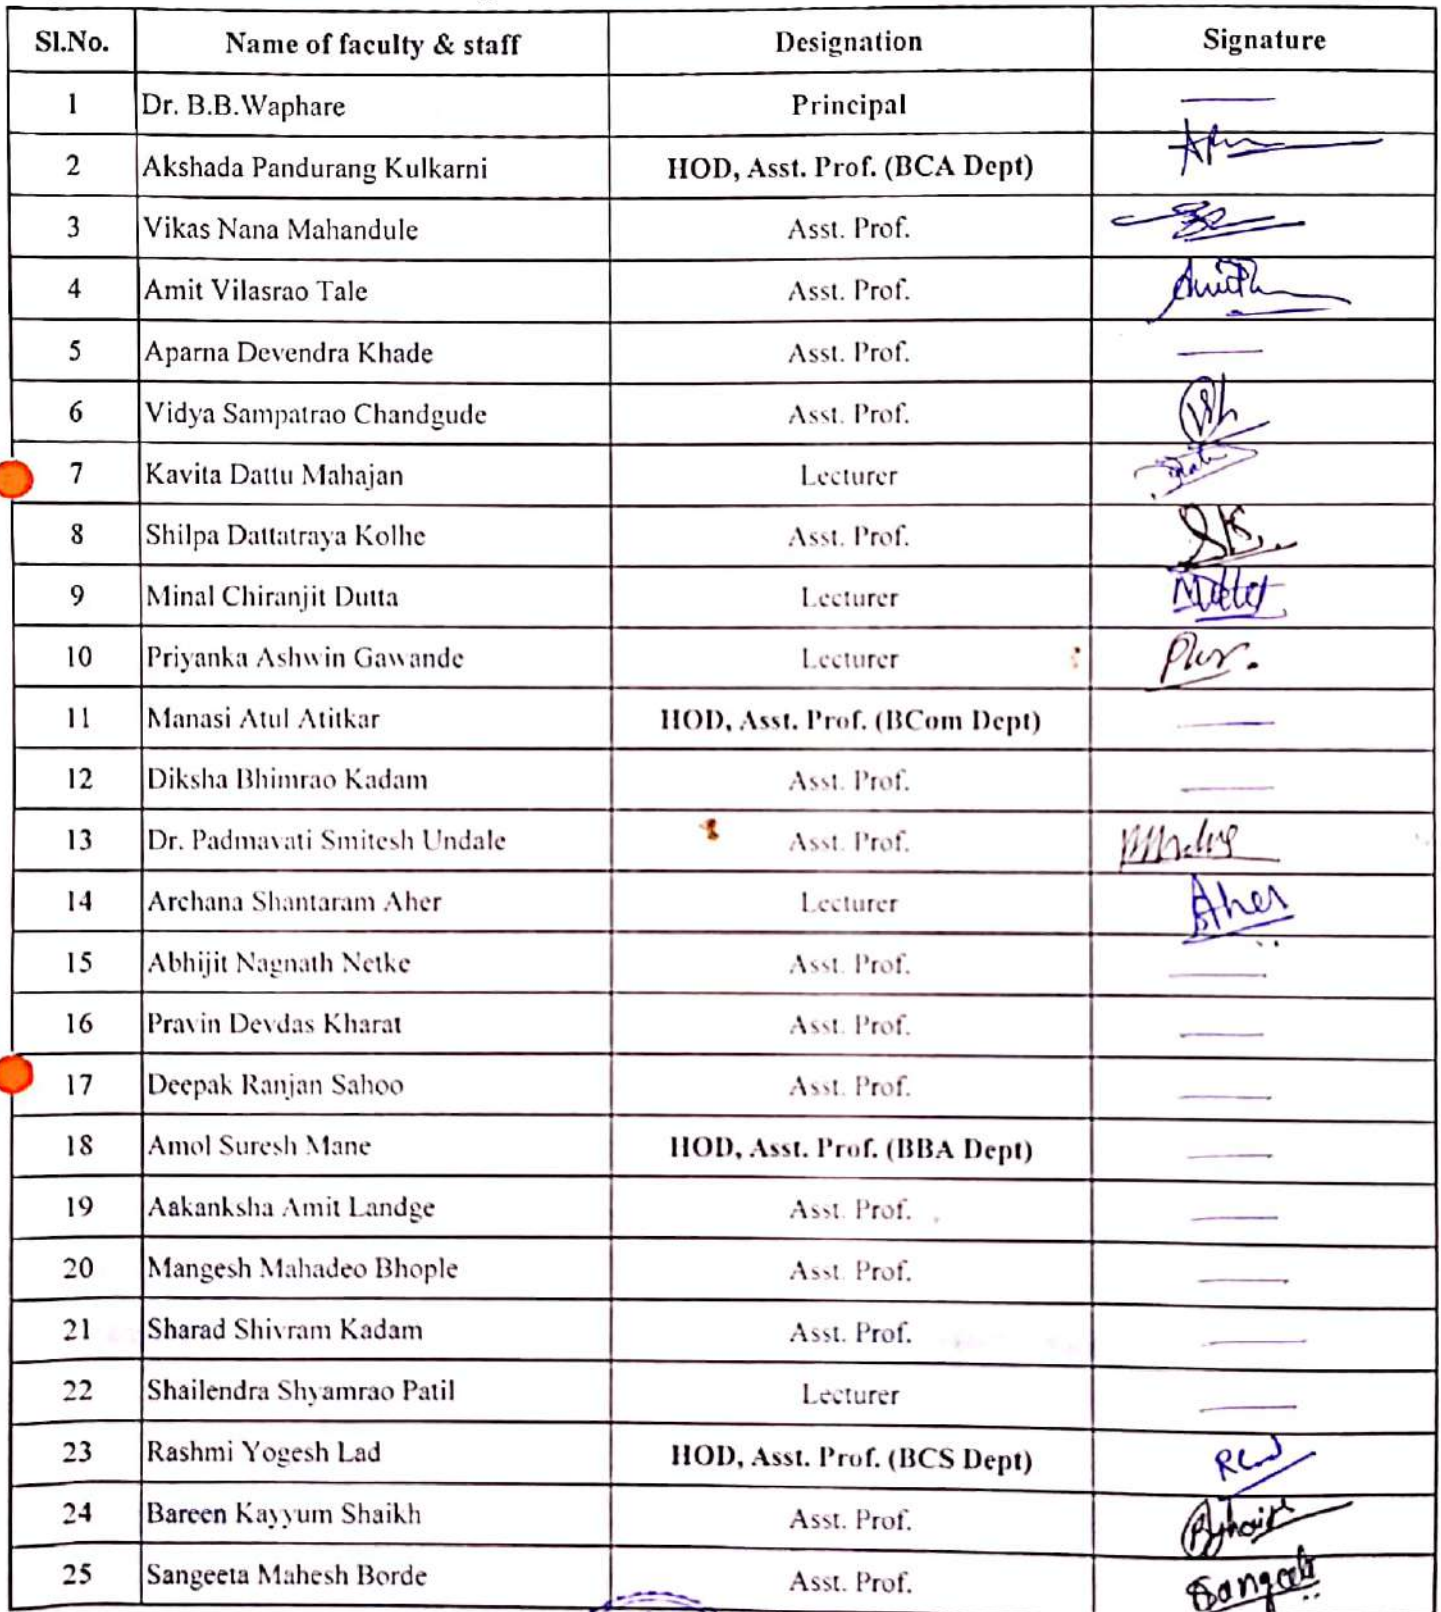 Sl.No. Name of faculty & staff Designation Signature
1 Dr. B.B.Waphare Principal —
2 Akshada Pandurang Kulkarni HOD, Asst. Prof. (BCA Dept)
3 Vikas Nana Mahandule Asst. Prof.
4 Amit Vilasrao Tale Asst. Prof.
5 Aparna Devendra Khade Asst. Prof. —
6 Vidya Sampatrao Chandgude Asst. Prof.
7 Kavita Dattu Mahajan Lecturer
8 Shilpa Dattatraya Kolhe Asst. Prof.
9 Minal Chiranjit Dutta Lecturer
10 Priyanka Ashwin Gawande Lecturer
11 Manasi Atul Atitkar HOD, Asst. Prof. (BCom Dept) —
12 Diksha Bhimrao Kadam Asst. Prof. —
13 Dr. Padmavati Smitesh Undale Asst. Prof.
14 Archana Shantaram Aher Lecturer Aher
15 Abhijit Nagnath Netke Asst. Prof. —
16 Pravin Devdas Kharat Asst. Prof. —
17 Deepak Ranjan Sahoo Asst. Prof. —
18 Amol Suresh Mane HOD, Asst. Prof. (BBA Dept) —
19 Aakanksha Amit Landge Asst. Prof. —
20 Mangesh Mahadeo Bhople Asst. Prof. —
21 Sharad Shivram Kadam Asst. Prof. —
22 Shailendra Shyamrao Patil Lecturer —
23 Rashmi Yogesh Lad HOD, Asst. Prof. (BCS Dept)
24 Bareen Kayyum Shaikh Asst. Prof.
25 Sangeeta Mahesh Borde Asst. Prof. Sangeeta